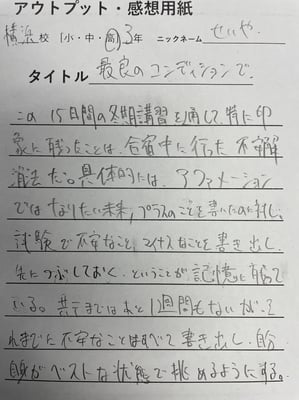 アウトプット・感想用紙
横浜校 (小・中・高) 3年 ニックネーム せいや.
タイトル 最良のコンディションで.
この15日間の冬期講習を通して、特に印
象に残ったことは、合宿中に行った不安解
消法だ。具体的には、アファメーション
ではなりたい未来、プラスのことを書いたのに対し、
試験で不安なこと、マイナスなことを書き出し
先につぶしておく、ということが記憶に残って
いる。共テまではあと1週間もないが、そ
れまでに不安なことはすべて書き出し、自分
自身がベストな状態で挑めるようにする。